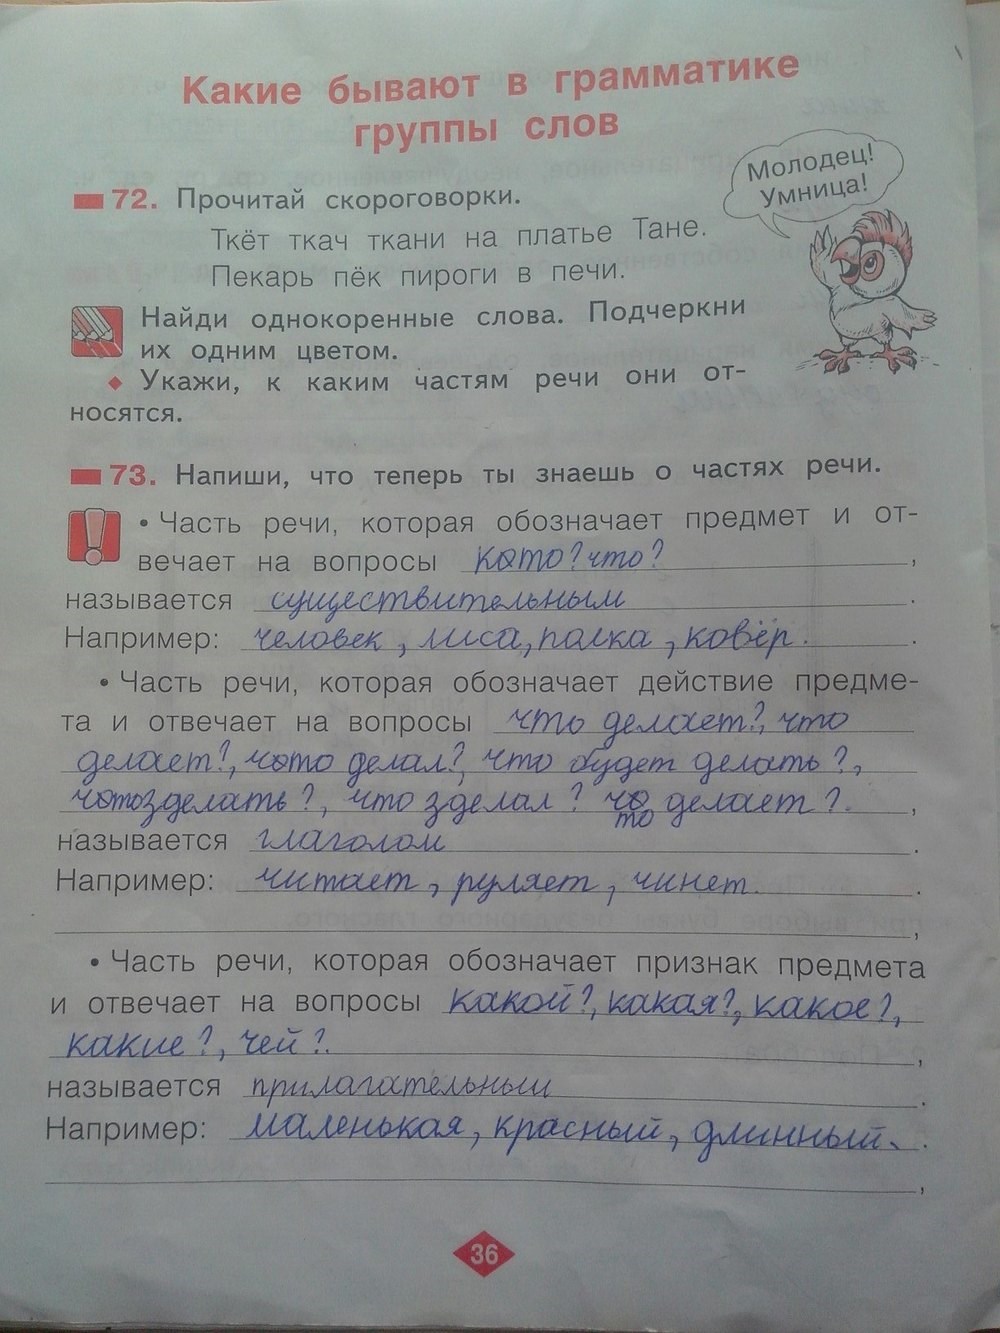 Какие бывают в грамматике
группы слов
Молодец!
Умница!
72. Прочитай скороговорки.
Ткёт ткач ткани на платье Тане.
Пекарь пёк пироги в печи.
Найди однокоренные слова. Подчеркни
их одним цветом.
◆ Укажи, к каким частям речи они от-
носятся.
73. Напиши, что теперь ты знаешь о частях речи.
• Часть речи, которая обозначает предмет и от-
вечает на вопросы кото? что? ,
называется существительным .
Например: человек, лиса, полка, ковёр. .
• Часть речи, которая обозначает действие предме-
та и отвечает на вопросы что делает?, что
делает?, что делал?, что будет делать?,
зделать?, что зделал? что делает?. ,
называется глаголом .
Например: читает, руляет, чинет. .
,
• Часть речи, которая обозначает признак предмета
и отвечает на вопросы какой?, какая?, какое?,
какие?, чей?. ,
называется прилагательным .
Например: маленькая, красный, длинный. .
,
36